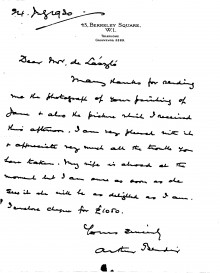 45, BERKELEY SQUARE.
W.1.
Dear Mrs. de László
Many thanks for sending
me the photograph of your painting of
June & also the picture which I received
this afternoon. I am very pleased with it
& appreciate very much all the trouble you
have taken. My wife is abroad at the
moment but I am sure as soon as she
sees it she will be as delighted as I am.
I enclose cheque for £1050.
Yours sincerely
Arthur